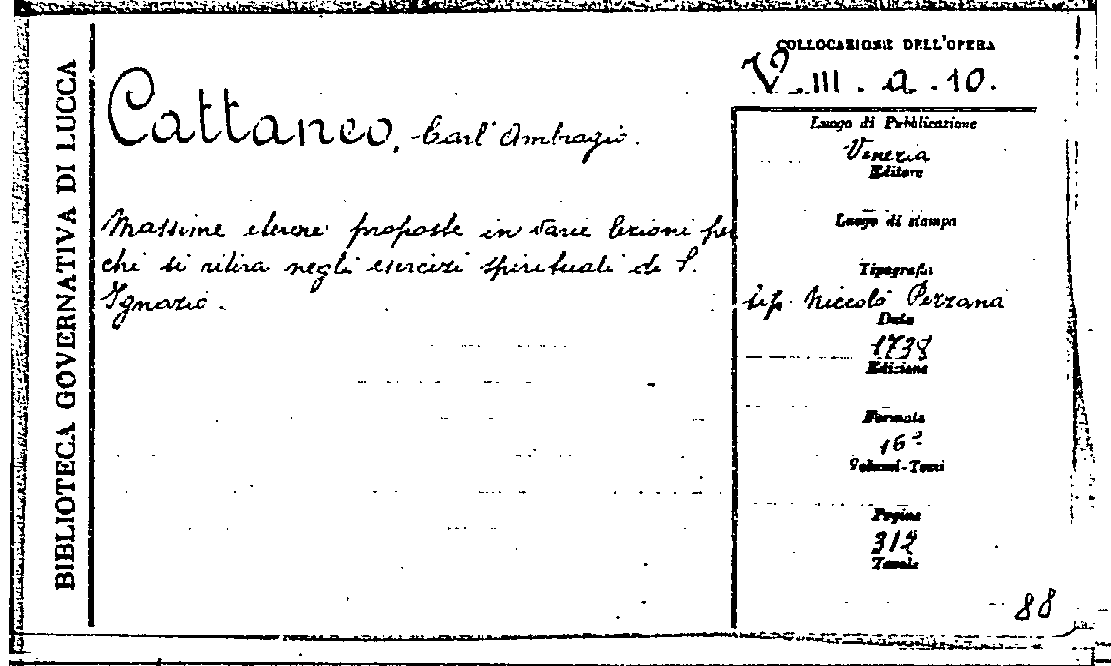 BIBLIOTECA GOVERNATIVA DI LUCCA
Cattaneo, Carl' Ambrogio.
Massime eterne proposte in varie lezioni per
chi si ritira negli esercizi spirituali di S.
Ignazio.
COLLOCAZIONE DELL'OPERA
V. III. a. 10.
Luogo di Pubblicazione
Venezia
Editore
Luogo di stampa
Tipografia
tip. Niccolò Pezzana
Data
1738
Edizione
Formato
16º
Volumi-Tomi
Pagine
312
Tavole
88